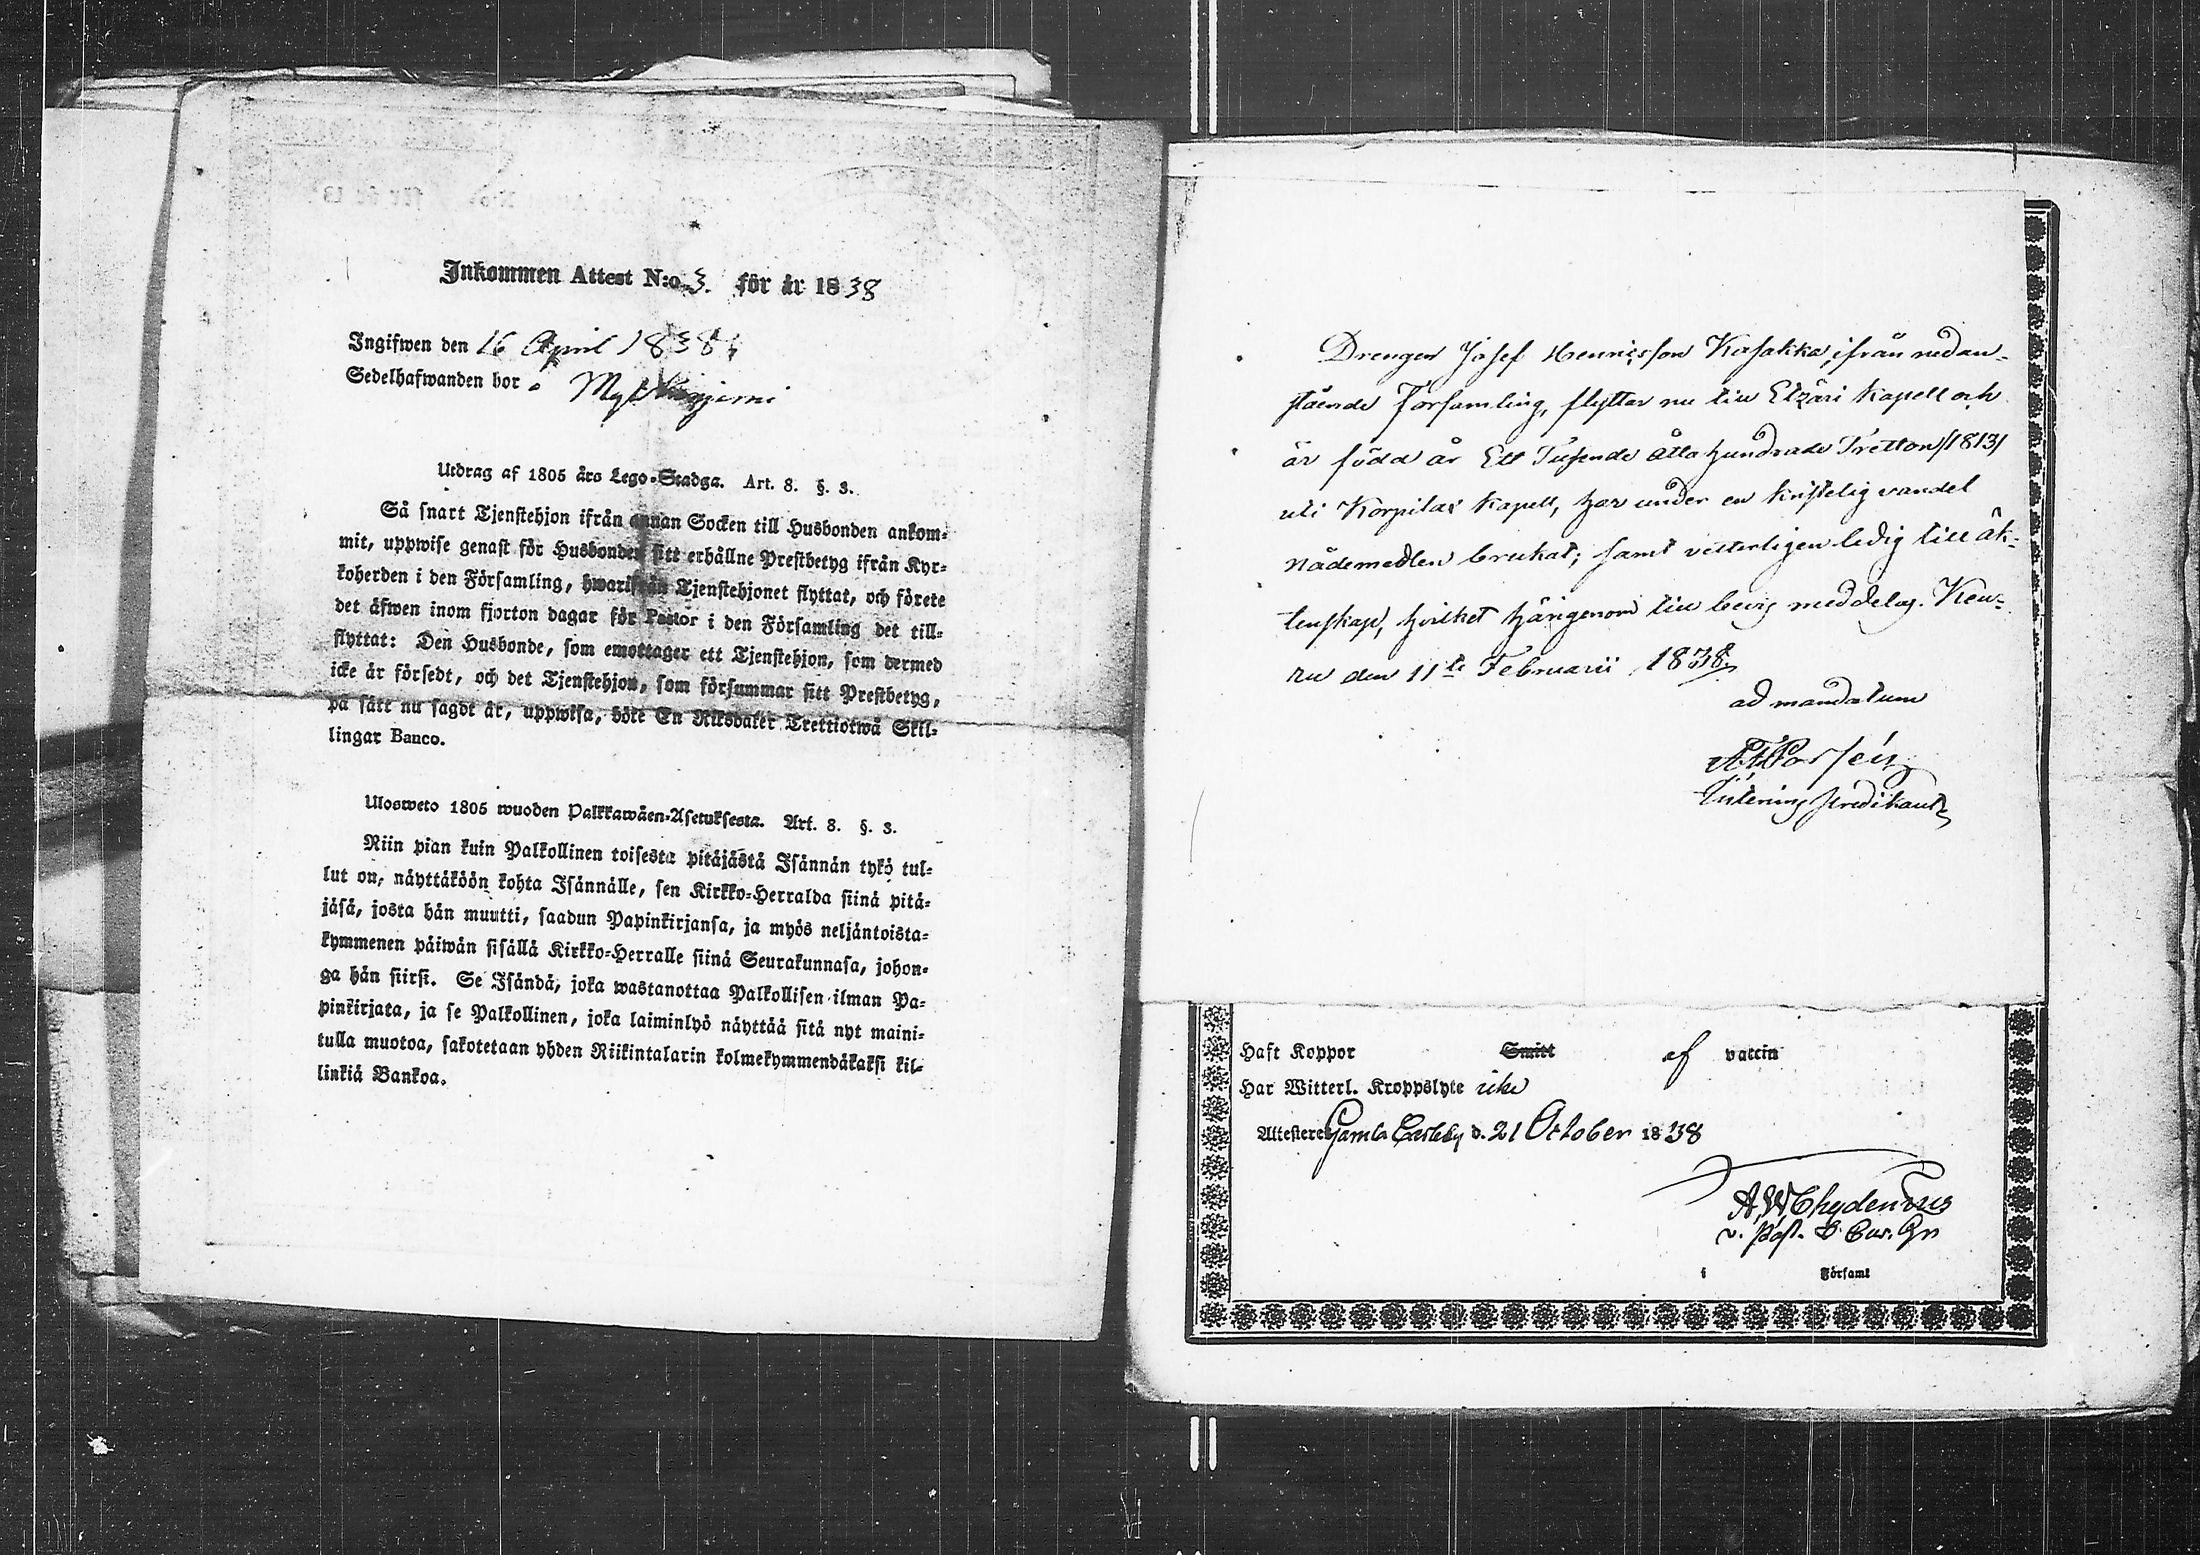 Inkommen Attest N:o 3. för år 1838
Ingifwen den 16 April 1838
Sedelhafwanden bor
Utdrag af 1805 års Lego-Stadga. Art. 8. §. 3.
Så snart Tjenstehjon ifrån annan Socken till Husbonden ankom-
mit, uppwise genast för Husbonden sitt erhållne Prestbetyg ifrån Kyr-
koherden i den Församling, hwarifrån Tjenstehjonet flyttat, och förete
det äfwen inom fjorton dagar för Pastor i den Församling det till-
flyttat: Den Husbonde, som emottager ett Tjenstehjon, som dermed
icke är försedt, och det Tjenstehjon, som försummar sitt Prestbetyg,
på sätt nu sagdt är, uppwisa, böte En Riksdaler Trettiotwå Skil-
lingar Banco.
Ulosweto 1805 wuoden Palkkawäen-Asetuksesta. Art. 8. §. 3.
Niin pian kuin Palkollinen toisesta pitäjästä Isännän tykö tul-
lut on, näyttäköön kohta Isännälle, sen Kirkko-Herralda siinä pitä-
jäsä, josta hän muutti, saadun Papinkirjansa, ja myös neljäntoista-
kymmenen päiwän sisällä Kirkko-Herralle siinä Seurakunnasa, johon-
ga hän siirsi. Se Isändä, joka wastanottaa Palkollisen ilman Pa-
pinkirjata, ja se Palkollinen, joka laiminlyö näyttää sitä nyt maini-
tulla muotoa, sakotetaan yhden Riikintalarin kolmekymmendäkaksi kil-
linkiä Bankoa.
Drengen Josef Henricsson Kasakka, ifrån nedan-
stående Församling, flyttar nu till Etzäri Kapell och
är född år Ett Tusende Åttahundrade Tretton /1813/
uti Korpilax Kapell, har under en kristelig vandel
nådemedlen brukat; samt vetterligen ledig till äk-
tenskap, hvilket härigenom till bevis meddelas. Keu-
ru den 11te Februarii 1838.
ad mandatum
Haft Koppor Smitt ej vaccin
Har Witterl. Kroppslyte icke
Attesterer Gamla Carleby d. 21 October 1838
A. W. Chydenius
i Församl